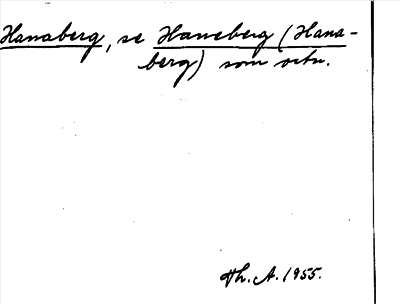 Hanaberg, se Haneberg (Hana-
berg) som ortn.
Hh. A. 1955.